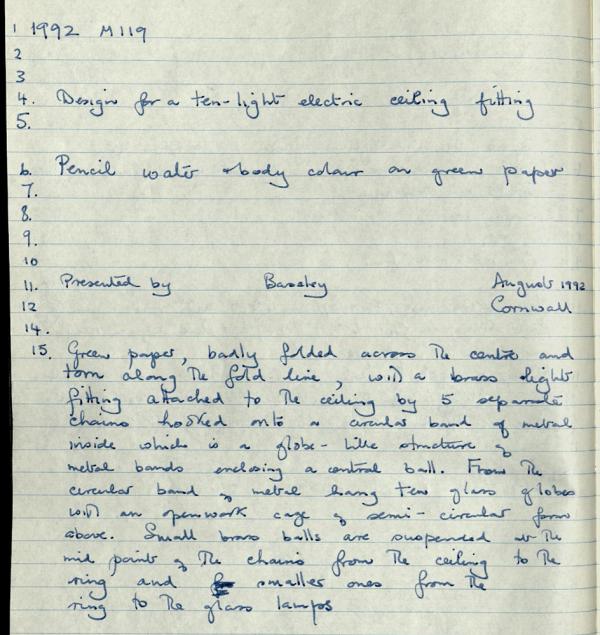 1 1992 M119
2
3
4. Design for a ten-light electric ceiling fitting
5.
6. Pencil water + body colour on green paper
7.
8.
9.
10
11. Presented by Baseley August 1992
12 Cornwall
14.
15. Green paper, badly folded across the centre and
torn along the fold line, with a brass light
fitting attached to the ceiling by 5 separate
chains hooked onto a circular band of metal
inside which is a globe-like structure of
metal bands enclosing a central ball. From the
circular band of metal hang ten glass globes
with an openwork cage of semi-circular form
above. Small brass balls are suspended at the
mid point of the chains from the ceiling to the
ring and smaller ones from the
ring to the glass lamps